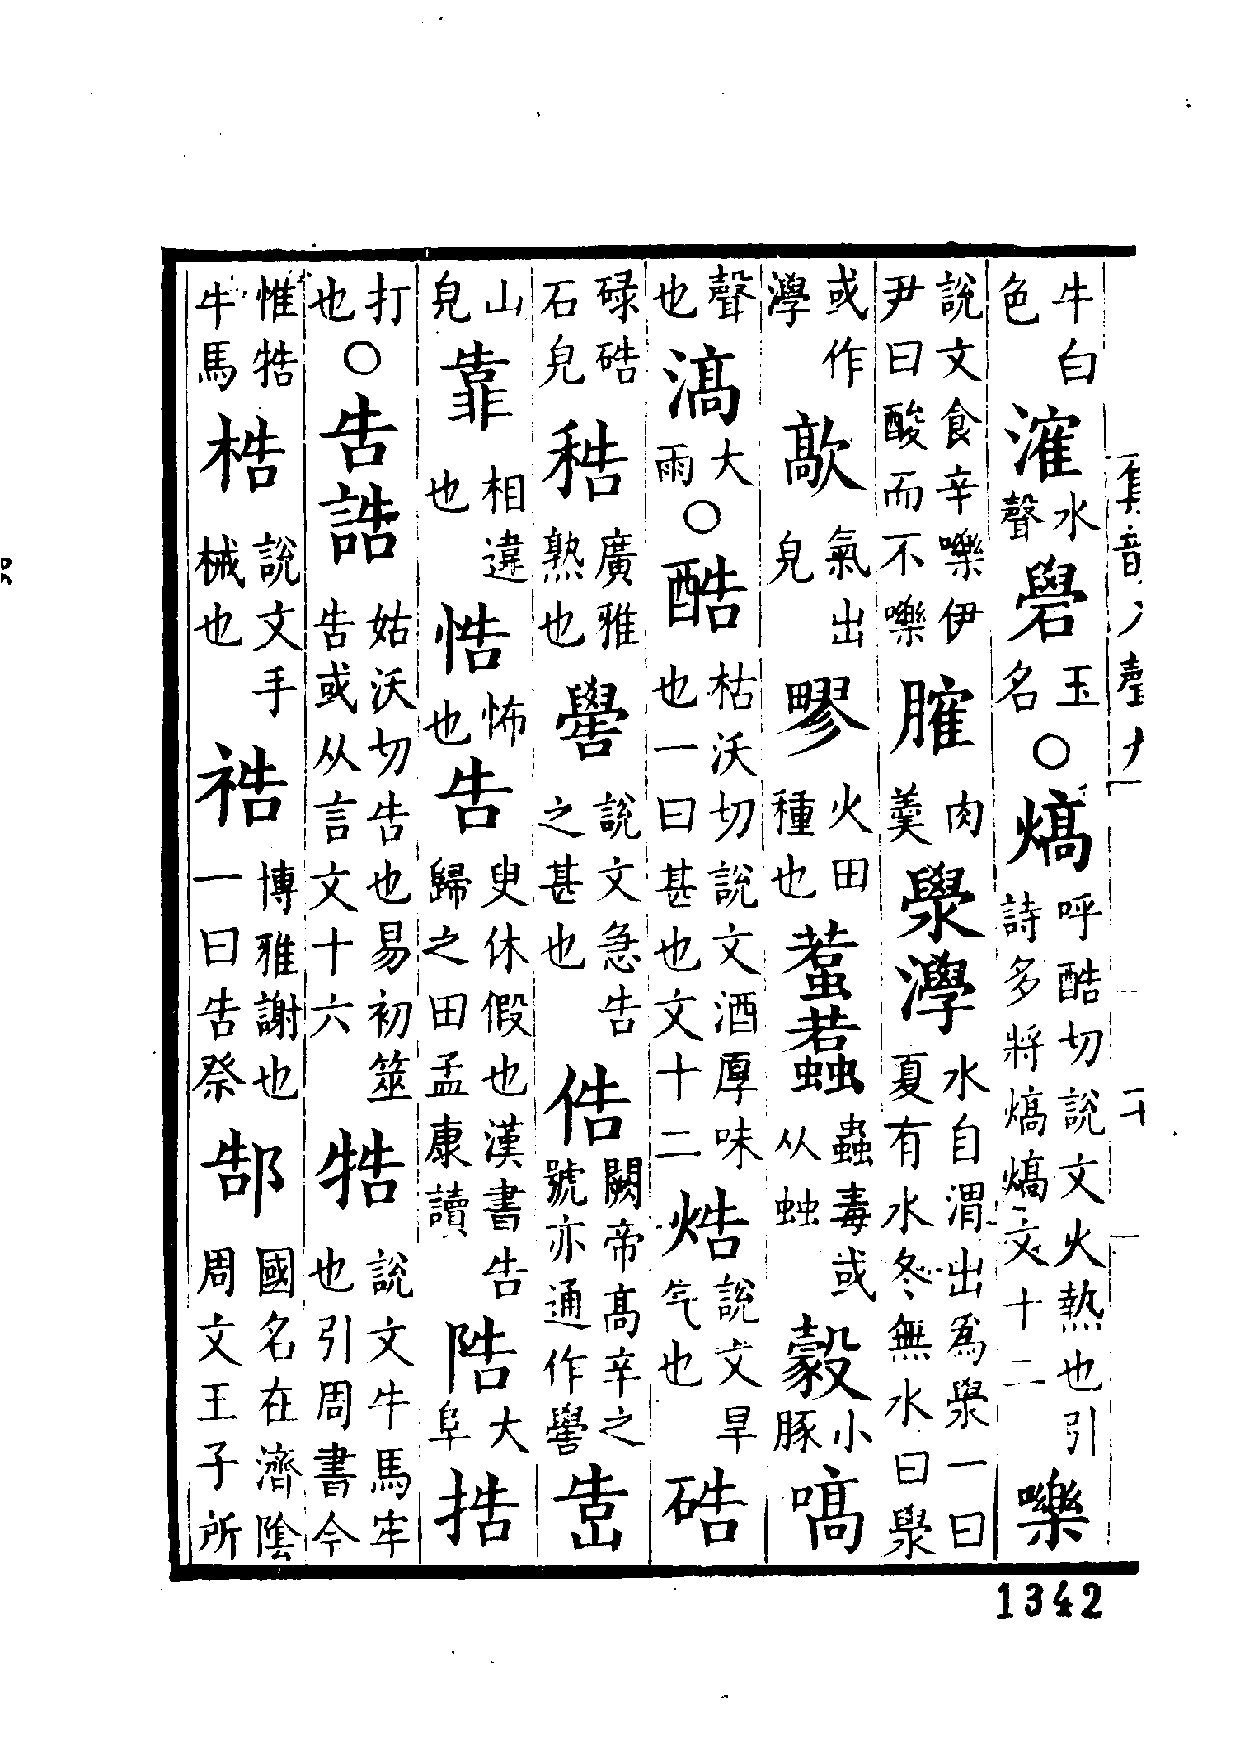 集韻入聲九 十
牛白色 㴶 水聲 礐 玉名 ○ 熇 呼酷切說文火熱也引詩多將熇熇文十二 嚛
說文食辛嚛伊尹曰酸而不嚛 臛 肉羹 澩㶅 水自渭出爲澩一曰夏有水冬無水曰澩
或作㶅 歊 氣出皃 疁 火田種也 蠚 蟲毒或从䖵 豰 小豚 嗃
聲也 滈 大雨 ○ 酷 枯沃切說文酒厚味也一曰甚也文十二 焅 說文旱气也 硞
碌硞石皃 䅵 廣雅熟也 嚳 說文急告之甚也 俈 闕帝高辛之號亦通作嚳 峼
山皃 靠 相違也 悎 怖也 告 叟休假也漢書告歸之田孟康讀 䧊 大阜 捁
打也 ○ 告誥 姑沃切告也易初筮告或从言文十六 牿 說文牛馬牢也引周書今
惟牿牛馬 梏 說文手械也 祰 博雅謝也一曰告祭 郜 國名在濟陰周文王子所
1342